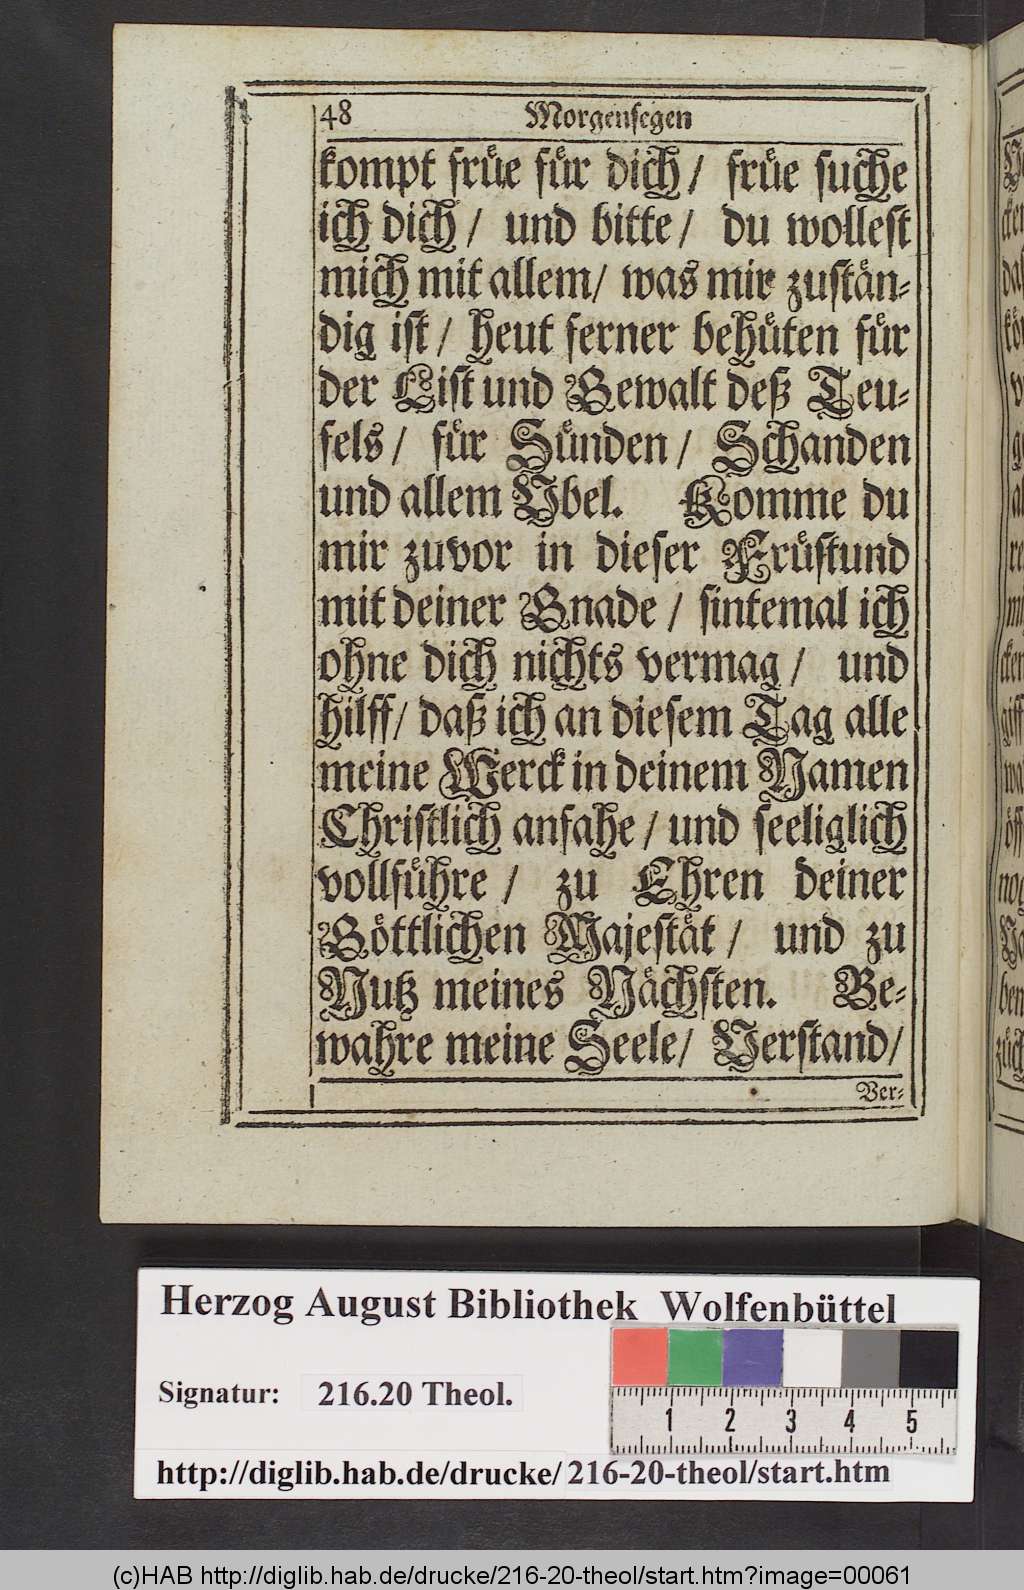 48 Morgensegen
kompt früe für dich / früe suche
ich dich / und bitte / du wollest
mich mit allem / was mir zustän-
dig ist / heut ferner behüten für
der List und Gewalt deß Teu-
fels / für Sünden / Schanden
und allem Ubel. Komme du
mir zuvor in dieser Früstund
mit deiner Gnade / sintemal ich
ohne dich nichts vermag / und
hilff / daß ich an diesem Tag alle
meine Werck in deinem Namen
Christlich anfahe / und seeliglich
vollführe / zu Ehren deiner
Göttlichen Majestät / und zu
Nutz meines Nächsten. Be-
wahre meine Seele / Verstand /
Ver-
Herzog August Bibliothek Wolfenbüttel
Signatur: 216.20 Theol.
1 2 3 4 5
http://diglib.hab.de/drucke/216-20-theol/start.htm
(c)HAB http://diglib.hab.de/drucke/216-20-theol/start.htm?image=00061